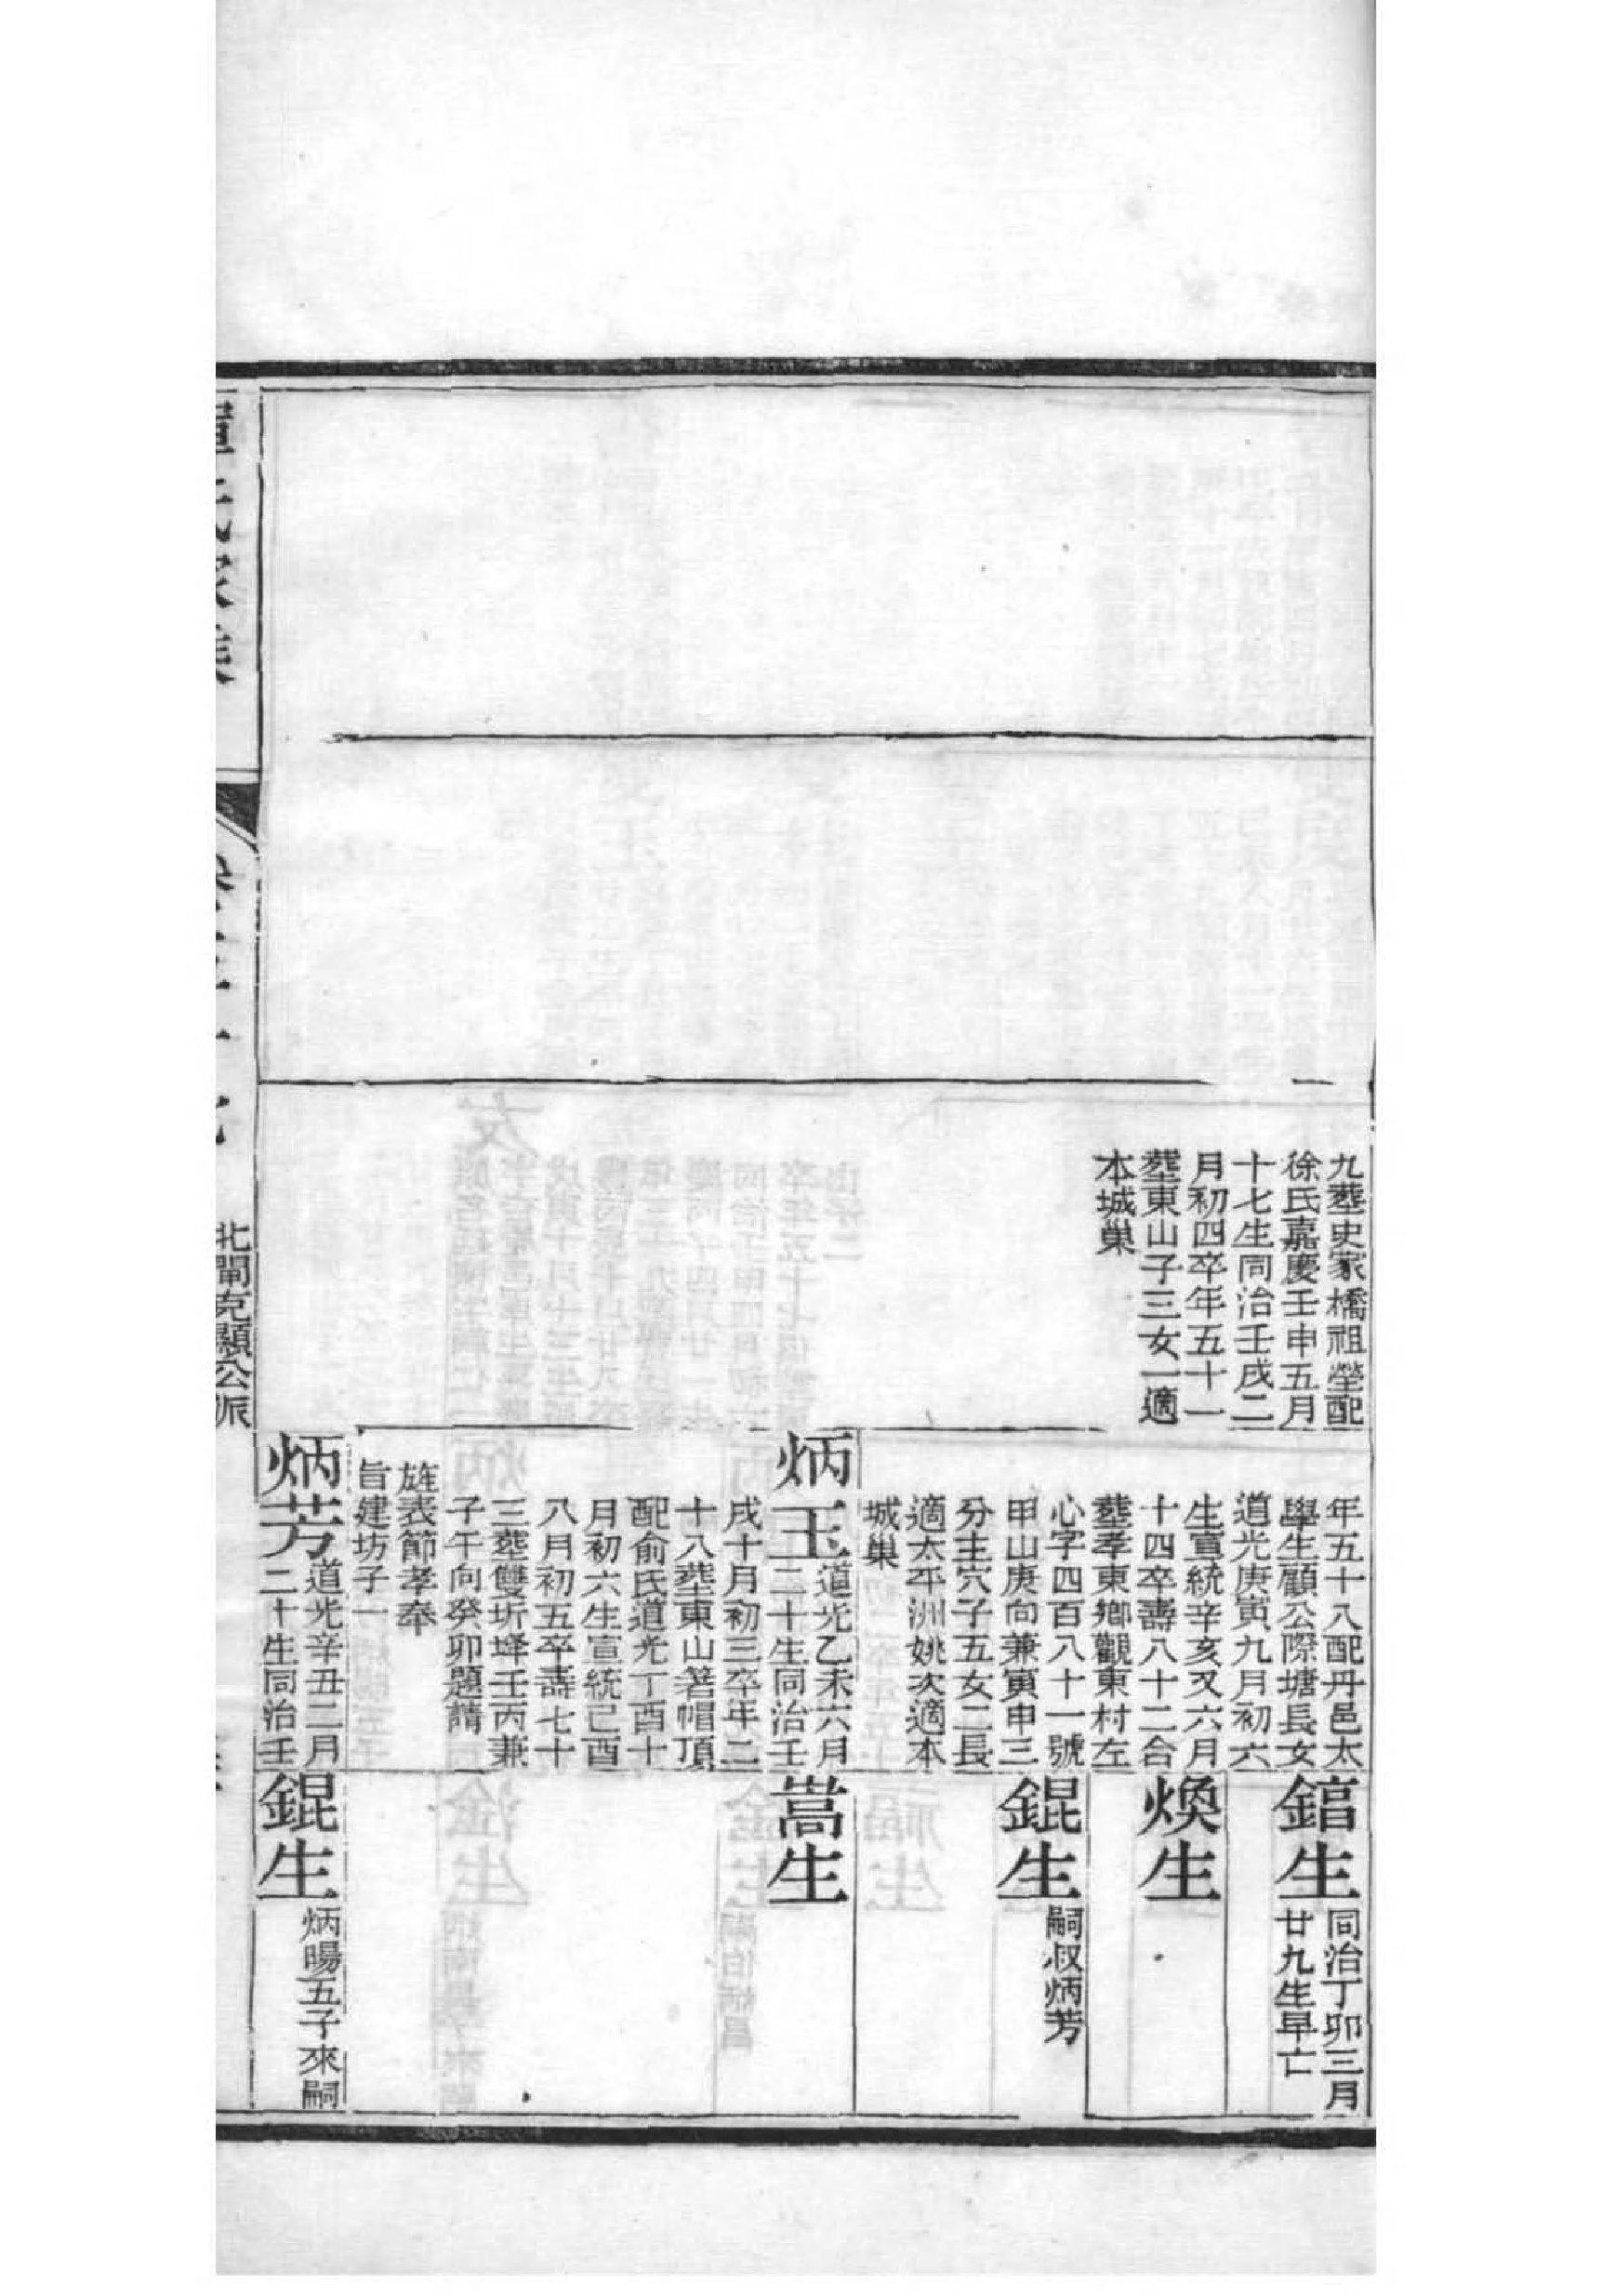 九葬史家橋祖塋配
徐氏嘉慶壬申五月
十七生同治壬戌二
月初四卒年五十一
葬東山子三女一適
本城巢
年五十八配丹邑太
學生顧公際塘長女
道光庚寅九月初六
生宣統辛亥又六月
十四卒壽八十二合
葬孝東鄉觀東村左
心字四百八十一號
甲山庚向兼寅申三
分主穴子五女二長
適太平洲姚次適本
城巢
炳玉
道光乙未六月
二十生同治壬
戌十月初三卒年二
十八葬東山著帽頂
配俞氏道光丁酉十
月初六生宣統己酉
八月初五卒壽七十
三葬雙圻垾壬丙兼
子午向癸卯題請
旌表節孝奉
旨建坊子一
炳芳
道光辛丑二月
二十生同治壬
鎬生
同治丁卯三月
廿九生早亡
煥生
錕生
嗣叔炳芳
嵩生
錕生
炳暘五子來嗣
北閘克顯公派